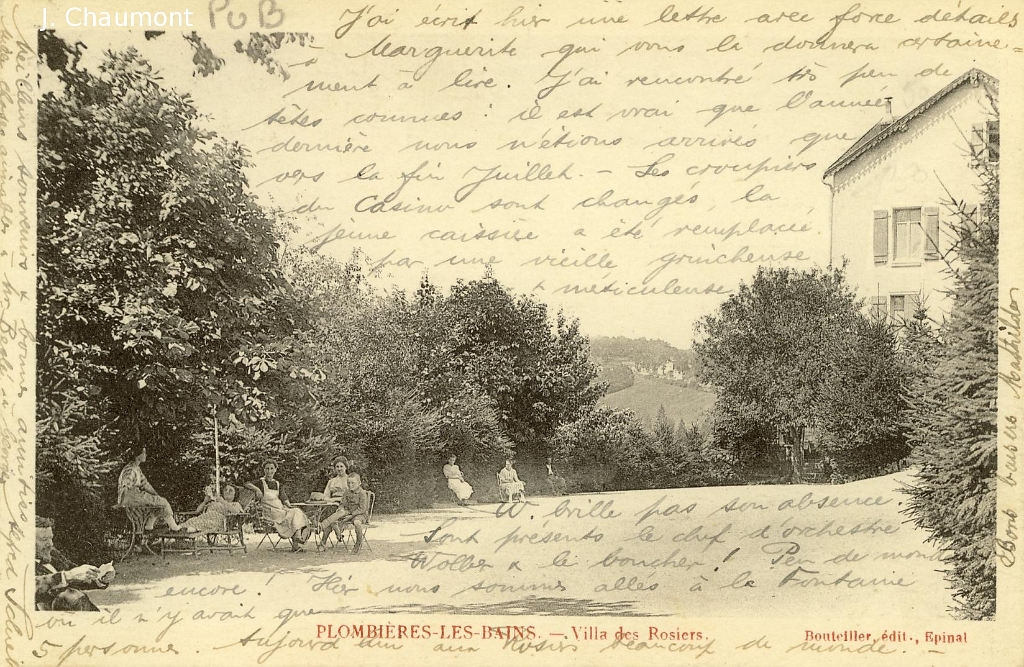 J. Chaumont
PuB
J'ai écrit hier une lettre avec force détails
à Marguerite qui vous la donnera certaine=
ment à lire. J'ai rencontré très peu de
têtes connues : il est vrai que l'année
dernière nous n'étions arrivés que
vers la fin Juillet. - Les croupiers
du Casino sont changés, la
jeune caissière a été remplacée
par une vieille grincheuse
& méticuleuse
W. brille par son absence
Sont présents le chef d'orchestre
Wolber & le boucher ! Peu de monde
encore ! Hier nous sommes allés à la Fontaine
où il n'y avait que
5 personnes. Aujourd'hui aux Rosiers beaucoup de monde. -
PLOMBIÈRES-LES-BAINS. — Villa des Rosiers.
Bouteiller, édit., Epinal
Meilleurs souvenirs & bonnes amitiés
Bons baisers